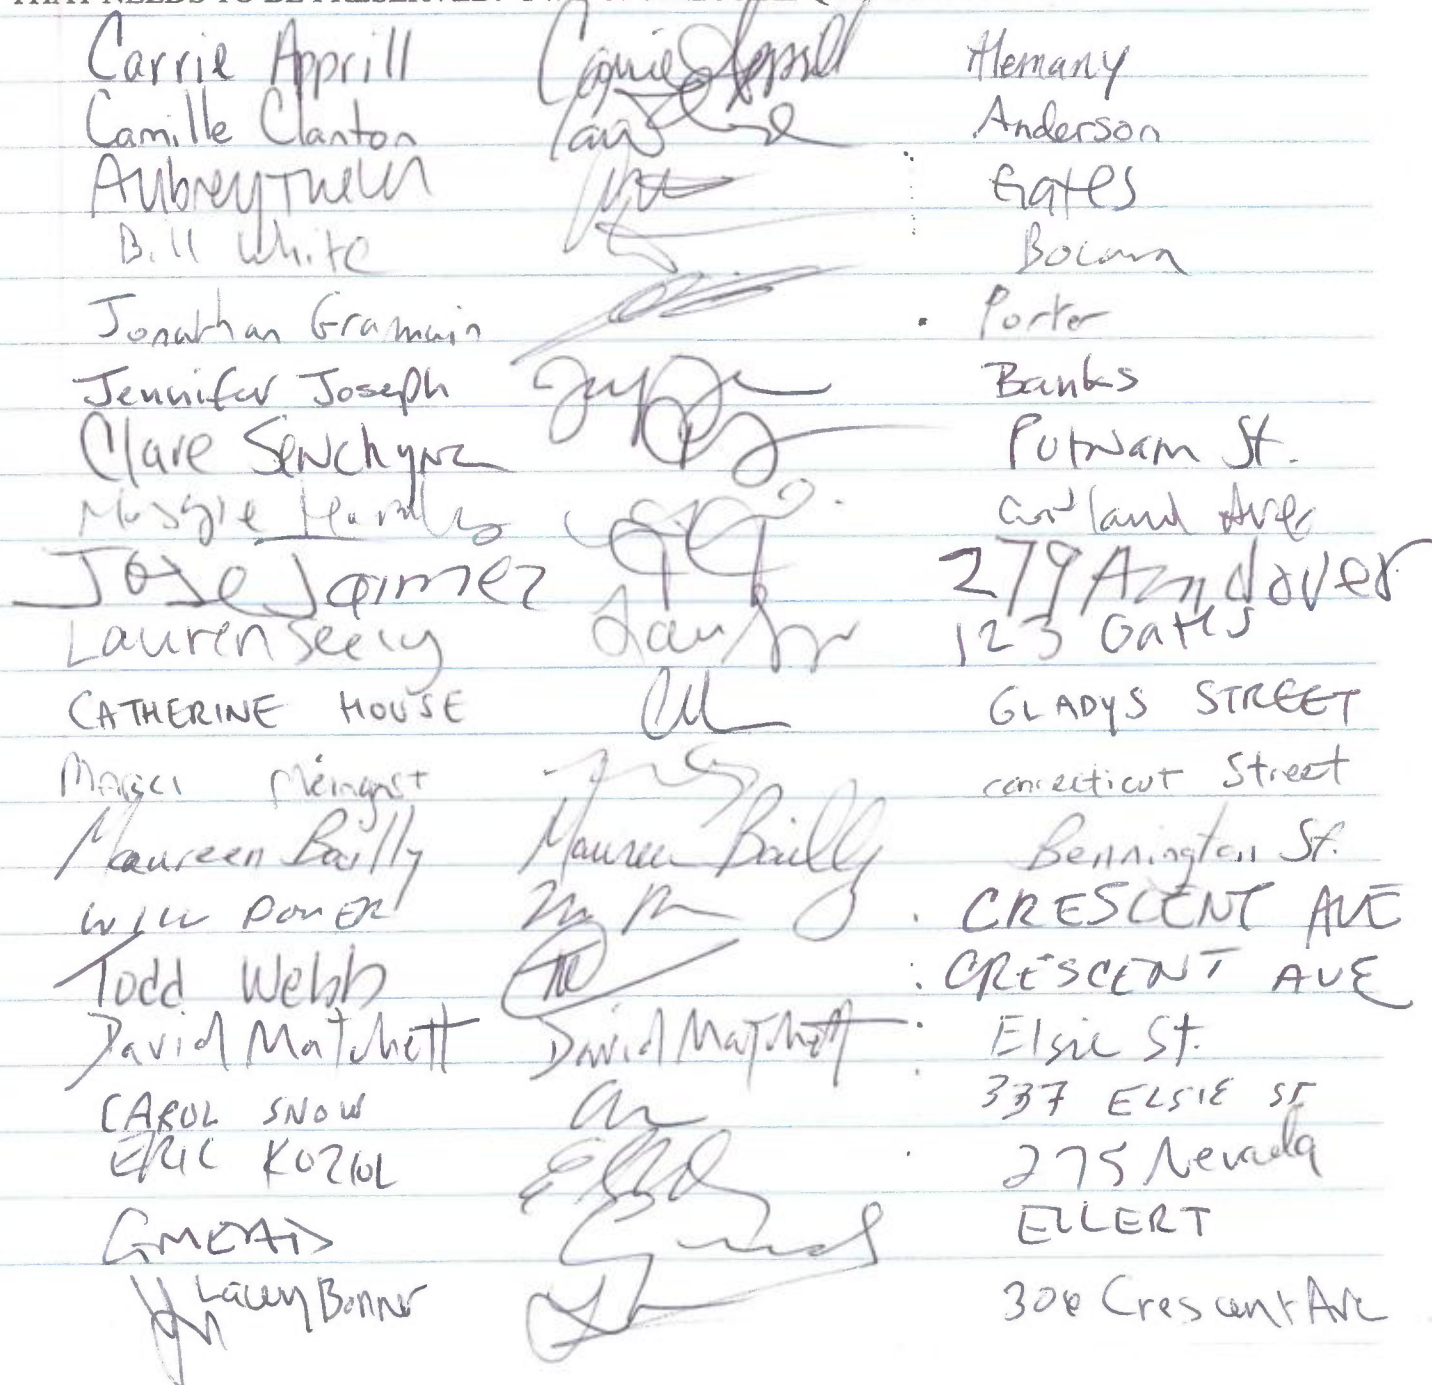 THAT NEEDS TO BE PRESERVED.
Carrie Apprill Carrie Apprill Alemany
Camille Clanton Anderson
Aubrey Gates
Bill White Bocana
Jonathan Gramain Porter
Jennifer Joseph Banks
Clare Senchyna Putnam St.
Maggie Cortland Ave
Jose Jaimez 279 Andover
Lauren Seely 123 Gates
CATHERINE HOUSE GLADYS STREET
connecticut Street
Maureen Bailly Maureen Bailly Bennington St.
WILL POWER CRESCENT AVE
Todd Webb CRESCENT AVE
David Matchett David Matchett Elsie St.
CAROL SNOW 337 ELSIE ST
ERIC KOZIOL 275 Nevada
ELLERT
Lacey Bonner 306 Crescent Ave